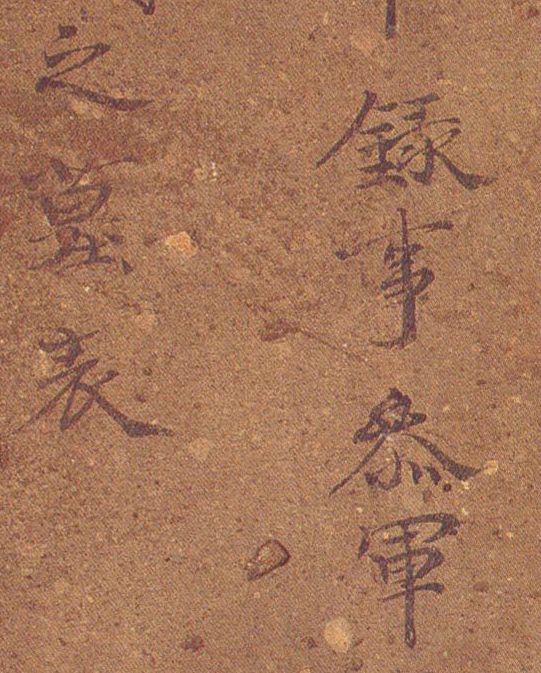 錄事叅軍
之墓表